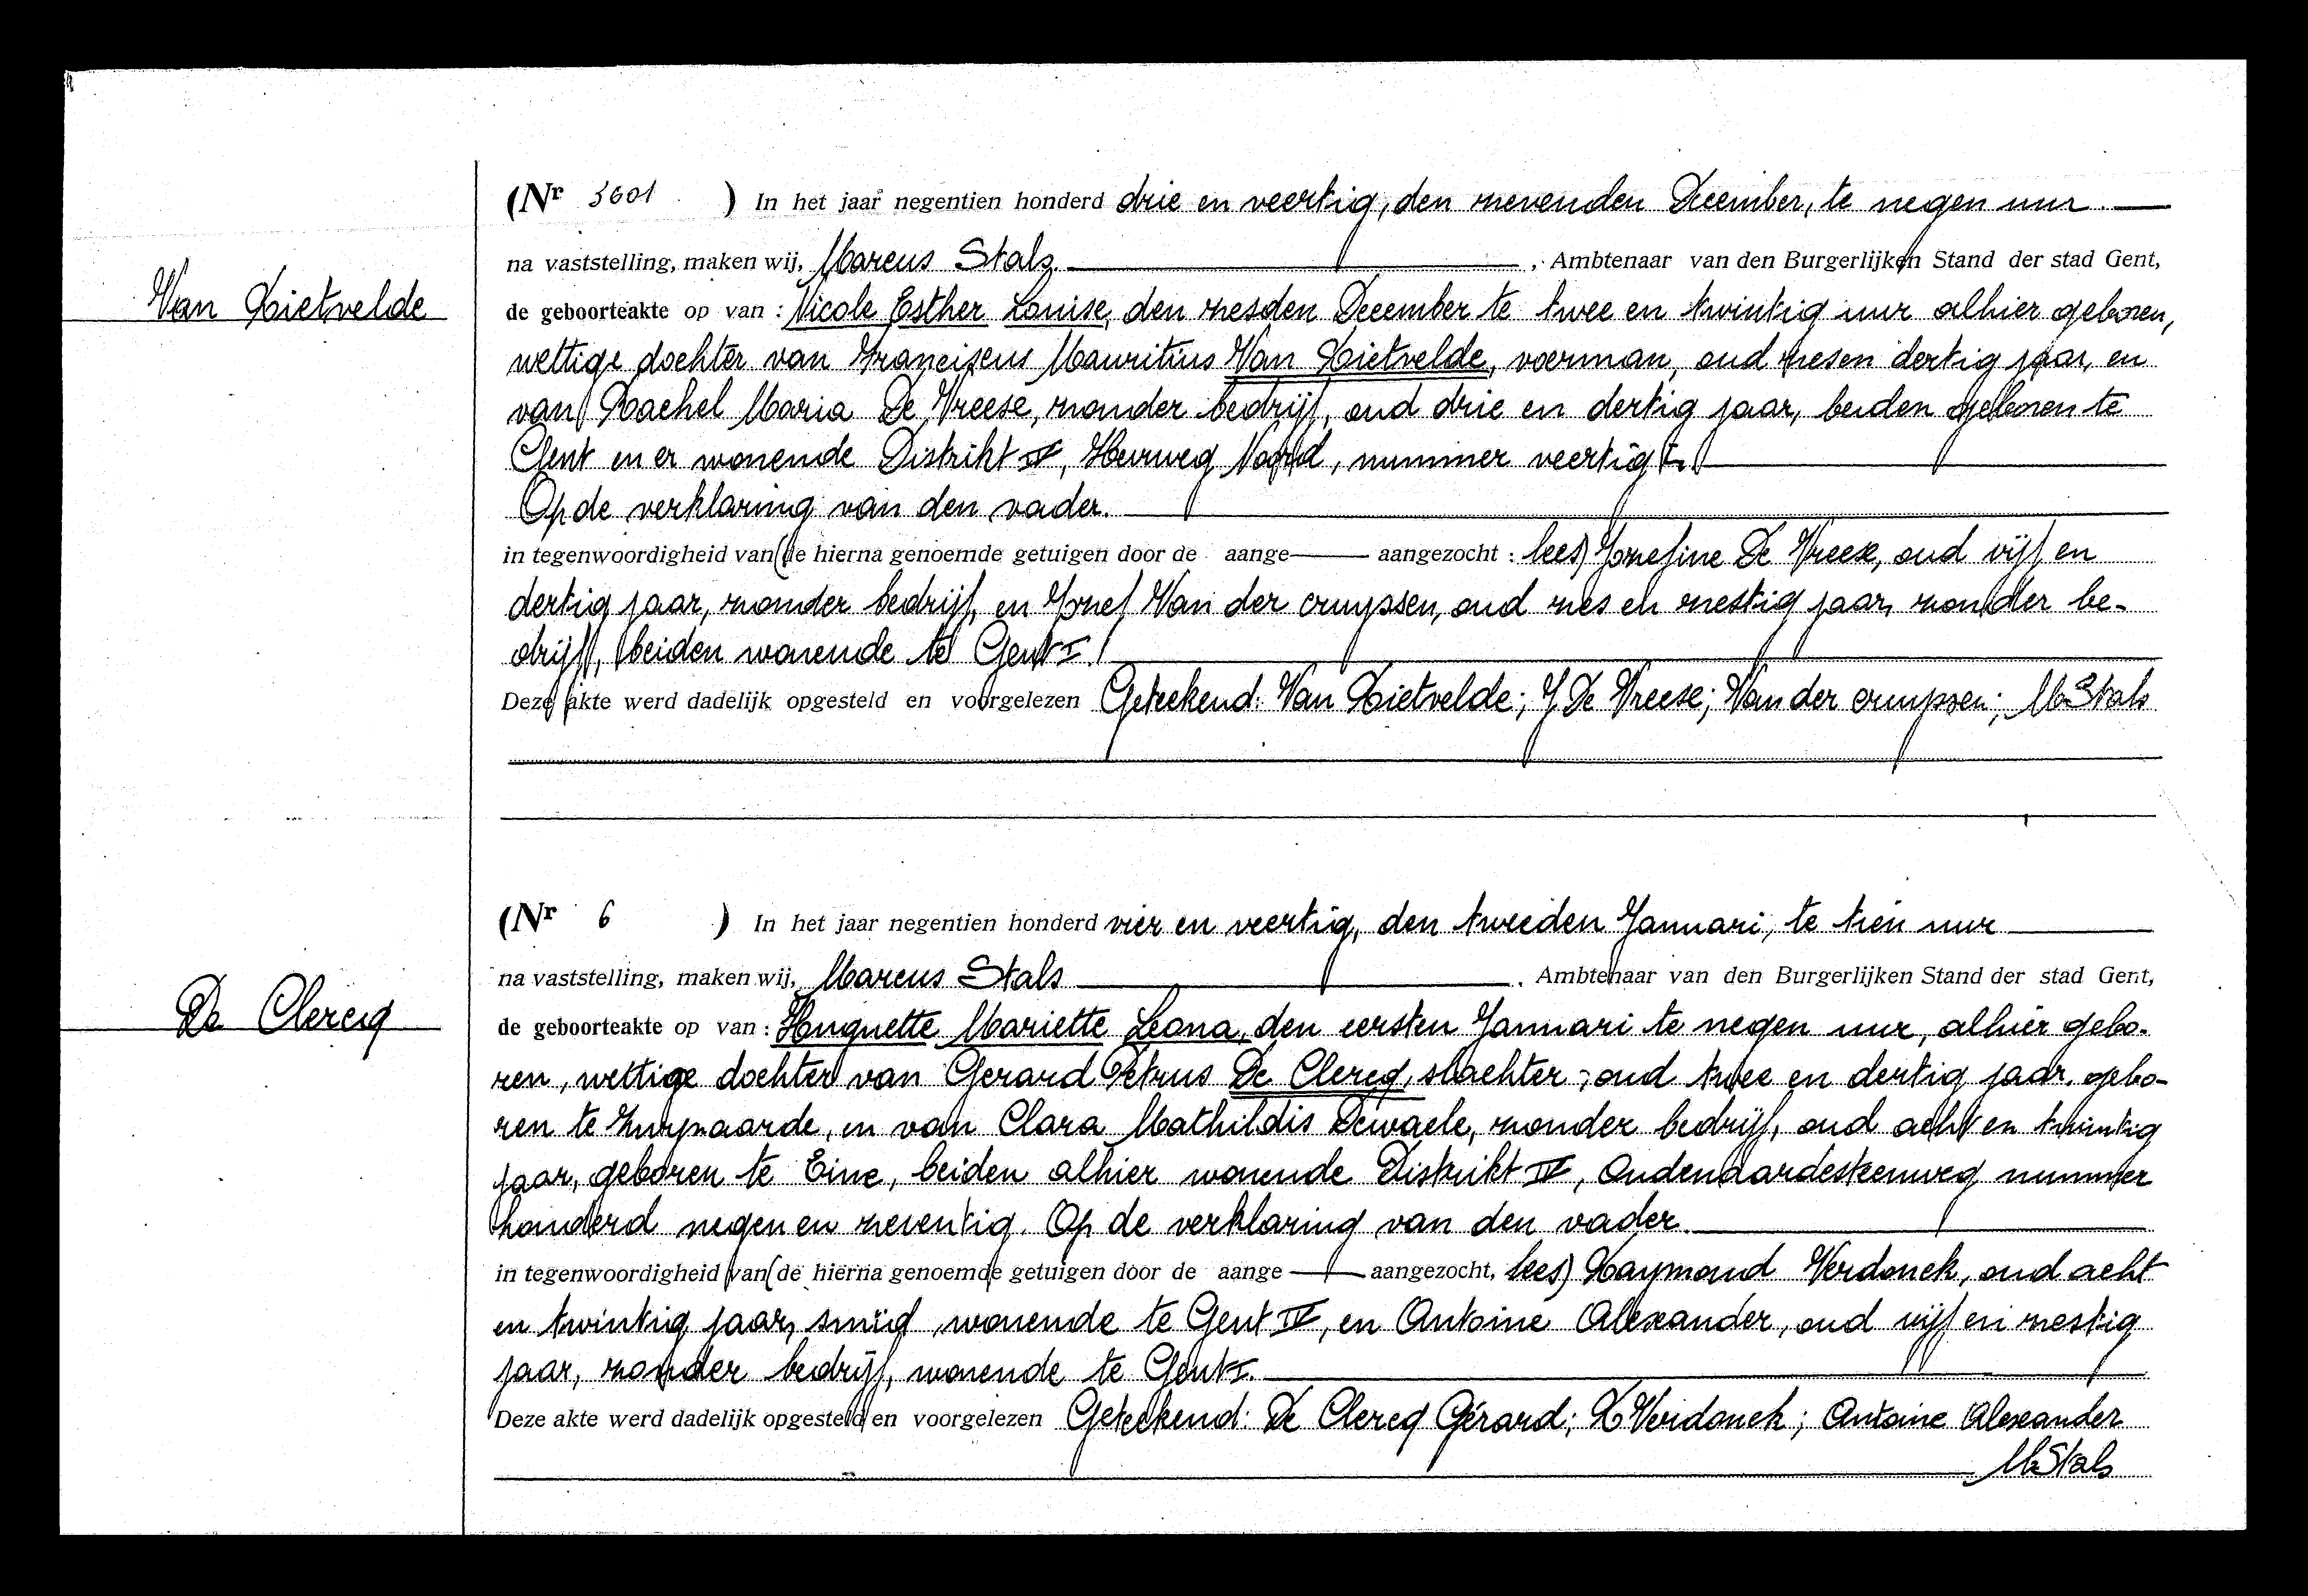 (Nr 3601 ) In het jaar negentien honderd drie en veertig, den zevenden December, te negen uur.
na vaststelling, maken wij, Marcus Stals, Ambtenaar van den Burgerlijken Stand der stad Gent,
Van Lietvelde
de geboorteakte op van : Nicole Esther Louise, den zesden December te twee en twintig uur alhier geboren,
wettige dochter van Franciscus Mauritius Van Lietvelde, voerman, oud zes en dertig jaar, en
van Rachel Maria De Vreese, zonder bedrijf, oud drie en dertig jaar, beiden geboren te
Gent en er wonende Distrikt IV, Heurweg Noord, nummer veertig
Op de verklaring van den vader.
in tegenwoordigheid van (de hierna genoemde getuigen door de aange aangezocht : lees) Jozefine De Vreese, oud vijf en
dertig jaar, zonder bedrijf, en Jozef Van der cruyssen, oud zes en zestig jaar, zonder be-
drijf, beiden wonende te Gent I.
Deze akte werd dadelijk opgesteld en voorgelezen Geteekend: Van Lietvelde; J. De Vreese; Van der cruyssen; M Stals
(Nr 6 ) In het jaar negentien honderd vier en veertig, den tweeden Januari, te tien uur
na vaststelling, maken wij, Marcus Stals, Ambtenaar van den Burgerlijken Stand der stad Gent,
De Clercq
de geboorteakte op van : Huguette Mariette Leona, den eersten Januari te negen uur, alhier gebo-
ren, wettige dochter van Gerard Petrus De Clercq, slachter, oud twee en dertig jaar, gebo-
ren te Huryzaarde, en van Clara Mathildis Dewaele, zonder bedrijf, oud acht en twintig
jaar, geboren te Eine, beiden alhier wonende Distrikt IV, Oudenaardesteenweg nummer
honderd negen en zeventig. Op de verklaring van den vader.
in tegenwoordigheid van (de hierna genoemde getuigen door de aange aangezocht, lees) Raymond Verdonck, oud acht
en twintig jaar, smid, wonende te Gent IV, en Antoine Alexander, oud vijf en zestig
jaar, zonder bedrijf, wonende te Gent I.
Deze akte werd dadelijk opgesteld en voorgelezen Geteekend: De Clercq Gérard; R Verdonck; Antoine Alexander
M Stals